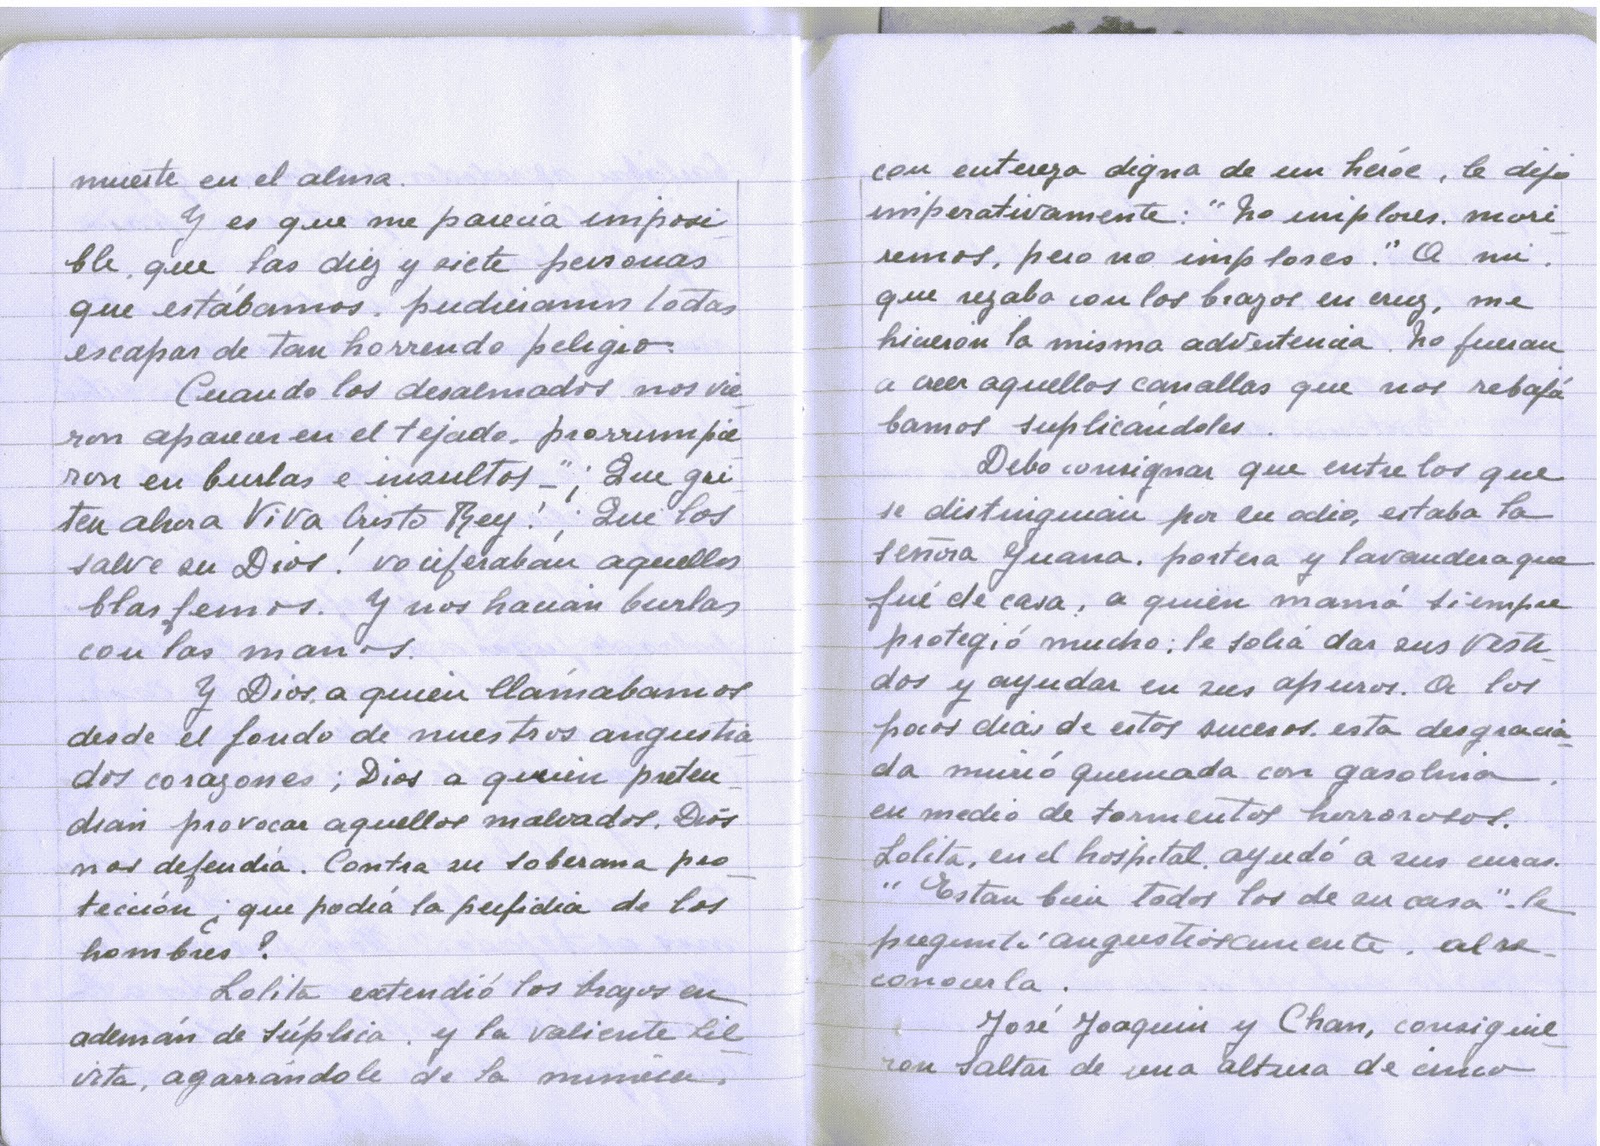 muerte en el alma.
Y es que me parecía imposi-
ble, que las diez y siete personas
que estábamos, pudieramos todas
escapar de tan horrendo peligro.
Cuando los desalmados nos vie-
ron aparecer en el tejado, prorrumpie-
ron en burlas e insultos -"¡Que gri-
ten ahora Viva Cristo Rey! ¡Que los
salve su Dios! vociferaban aquellos
blasfemos. Y nos hacían burlas
con las manos.
Y Dios, a quien llamábamos
desde el fondo de nuestros angustia-
dos corazones; Dios a quien preten-
dian provocar aquellos malvados, Dios
nos defendía. Contra su soberana pro-
tección ¿que podía la perfidia de los
hombres?
Lolita extendió los brazos en
ademán de súplica, y la valiente Sil-
vita, agarrándole de la muñeca,
con entereza digna de un héroe, le dijo
imperativamente: "No implores. mori-
remos, pero no implores." A mi,
que rezaba con los brazos en cruz, me
hicieron la misma advertencia. No fueran
a creer aquellos canallas que nos rebajá-
bamos suplicándoles.
Debo consignar que entre los que
se distinguían por su odio, estaba la
señora Juana, portera y lavandera que
fué de casa, a quien mamá siempre
protegió mucho; le solía dar sus vesti-
dos y ayudar en sus apuros. A los
pocos días de estos sucesos, esta desgracia-
da murió quemada con gasolina,
en medio de tormentos horrorosos.
Lolita, en el hospital, ayudó a sus curas.
"Estan bien todos los de su casa"- le
preguntó angustiosamente, al re-
conocerla.
José Joaquin y Chan, consiguie-
ron saltar de una altura de cinco